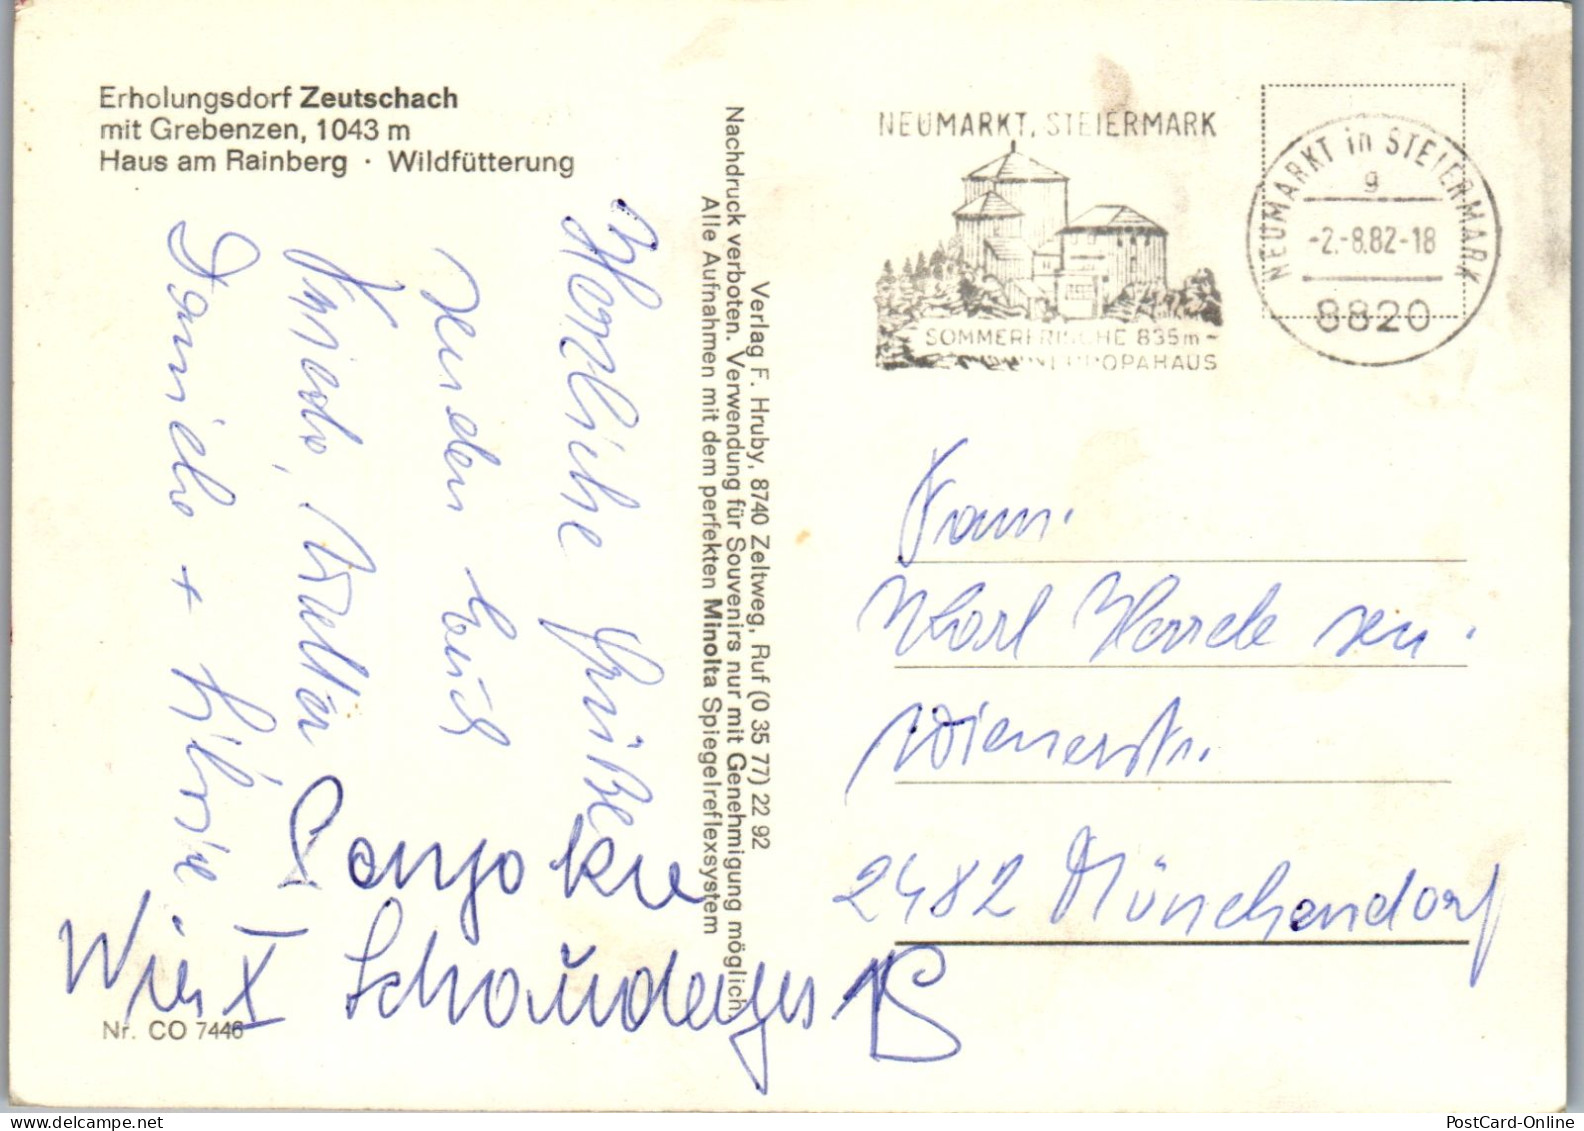 Erholungsdorf Zeutschach
mit Grebenzen, 1043 m
Haus am Rainberg · Wildfütterung
Herzliche Grüße
senden Euch
Daniela +
Wien X
Nr. CO 7446
Verlag F. Hruby, 8740 Zeltweg, Ruf (0 35 77) 22 92
Nachdruck verboten. Verwendung für Souvenirs nur mit Genehmigung möglich.
Alle Aufnahmen mit dem perfekten Minolta Spiegelreflexsystem
NEUMARKT, STEIERMARK
SOMMERFRISCHE 835m –
EUROPAHAUS
NEUMARKT in STEIERMARK
g
-2.-8.82-18
8820
Fam.
Karl sen.
Wienerstr.
2482 Münchendorf
PostCard-Online